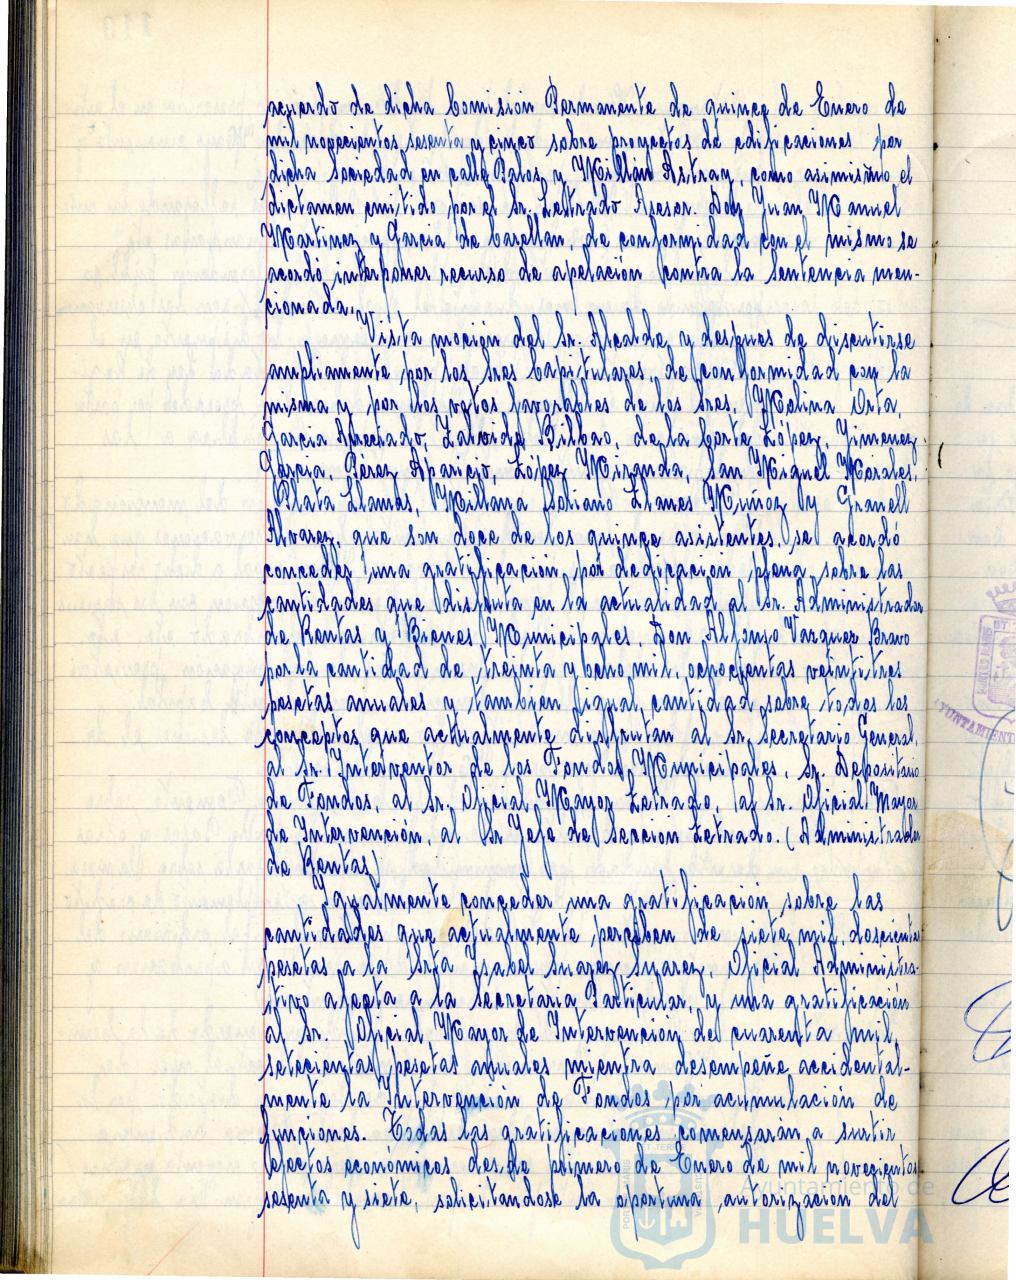 acuerdo de dicha Comision Permanente de quince de Enero de
mil novecientos sesenta y cinco sobre proyectos de edificaciones por
dicha Sociedad en calle Palos y Millán Astray, como asimismo el
dictamen emitido por el Sr. Letrado Asesor. Don Juan Manuel
Martinez y Garcia de Casellan, de conformidad con el mismo se
acordó interponer recurso de apelación contra la sentencia men-
cionada.
Vista moción del Sr. Alcalde, y despues de discutirse
ampliamente por los Sres Capitulares, de conformidad con la
misma y por los votos favorables de los Sres. Molina Orta,
Garcia Afectado, Zalvide Bilbao, de la Corte López, Jimenez
Garcia, Perez Aparicio, López Miranda, San Miguel Morales,
Prata Llamas, Millana Soriano Llanes Muñoz y Granell
Alvarez, que son doce de los quince asistentes, se acordó
conceder una gratificacion por dedicacion plena, sobre las
cantidades que disfruta en la actualidad al Sr. Administrador
de Rentas y Bienes Municipales, Don Alfonso Vazquez Bravo
por la cantidad de treinta y ocho mil, ochocientas veintitres
pesetas anuales y tambien igual cantidad sobre todos los
conceptos que actualmente disfrutan al Sr. Secretario General,
al Sr. Interventor de los Fondos Municipales, Sr. Depositario
de Fondos, al Sr. Oficial Mayor Letrado, al Sr. Oficial Mayor
de Intervención, al Sr Jefe de Seccion Letrado. (Administrador
de Rentas)
Igualmente conceder una gratificación sobre las
cantidades que actualmente perciben de siete mil doscientas
pesetas a la Srta Ysabel Suarez Suarez, Oficial Administra-
tivo afecta a la Secretaria Particular, y una gratificación
al Sr. Oficial Mayor de Intervención de cuarenta mil
setecientas pesetas anuales mientra desempeñe accidental-
mente la Intervención de Fondos por acumulación de
funciones. Todas las gratificaciones comensarán a surtir
efectos económicos desde primero de Enero de mil novecientos
sesenta y siete, solicitandose la oportuna autorizacion del
AYUNTAMIENTO
Ayuntamiento de
HUELVA